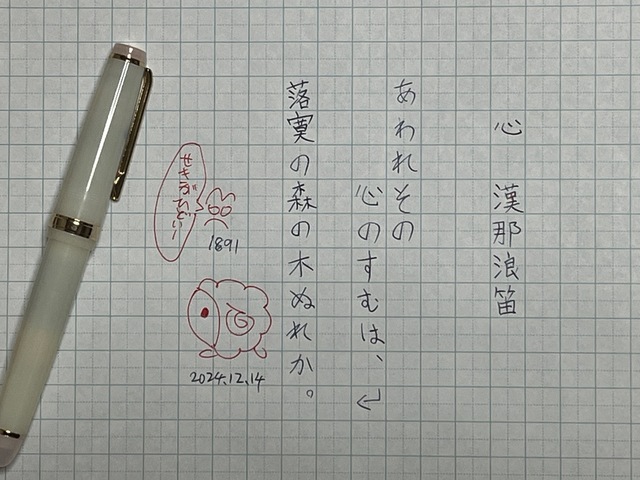 心 漢那浪笛
あわれその
心のすむは、↵
落寞の森の木ぬれか。
せきがひどいー
1891
2024.12.14